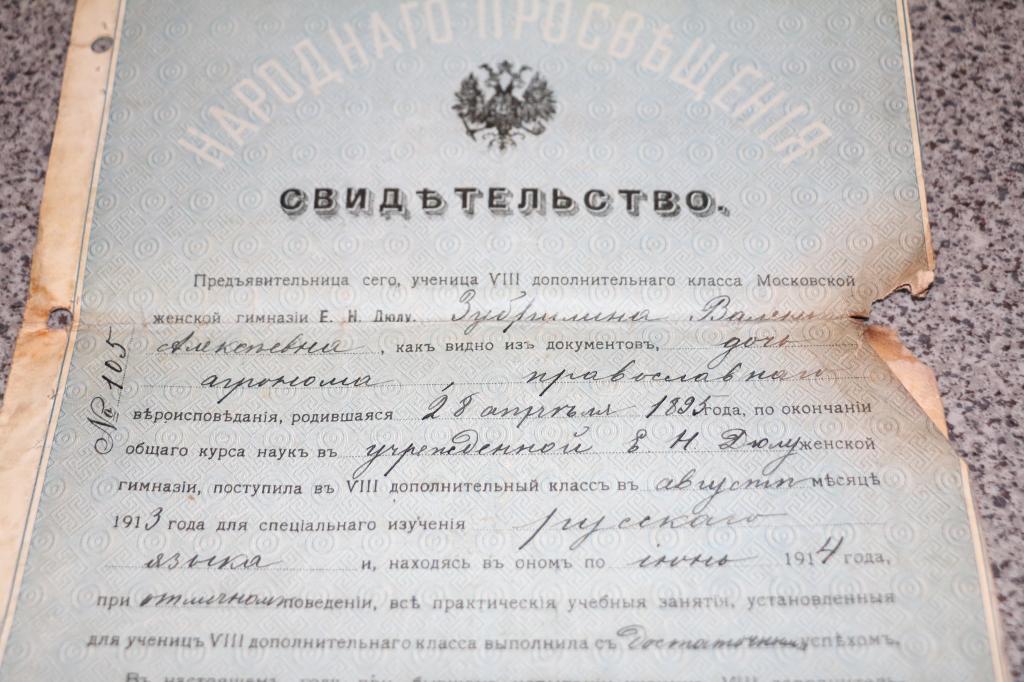 НАРОДНАГО ПРОСВѢЩЕНІЯ
СВИДѢТЕЛЬСТВО.
Предъявительница сего, ученица VIII дополнительнаго класса Московской
женской гимназіи Е. Н. Дюлу. Зубрилина Вален
Алексѣевна, какъ видно изъ документовъ, дочь
агронома, православнаго
№ 105
вѣроисповѣданія, родившаяся 28 апрѣля 1895 года, по окончаніи
общаго курса наукъ въ учрежденной Е. Н Дюлу женской
гимназіи, поступила въ VIII дополнительный классъ въ августѣ мѣсяцѣ
1913 года для спеціальнаго изученія русскаго
языка и, находясь въ ономъ по іюнь 1914 года,
при отличномъ поведеніи, всѣ практическія учебныя занятія, установленныя
для ученицъ VIII дополнительнаго класса выполнила съ достаточнымъ успѣхомъ.